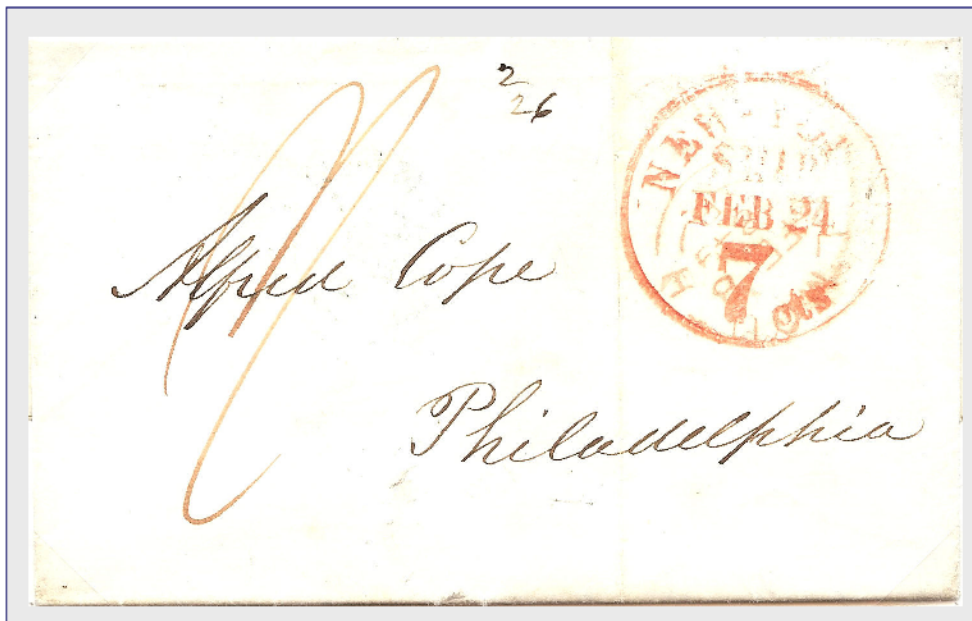 2
26
NEW-YORK
SHIP
FEB 24
7
Cts.
Alfred Cope
Philadelphia